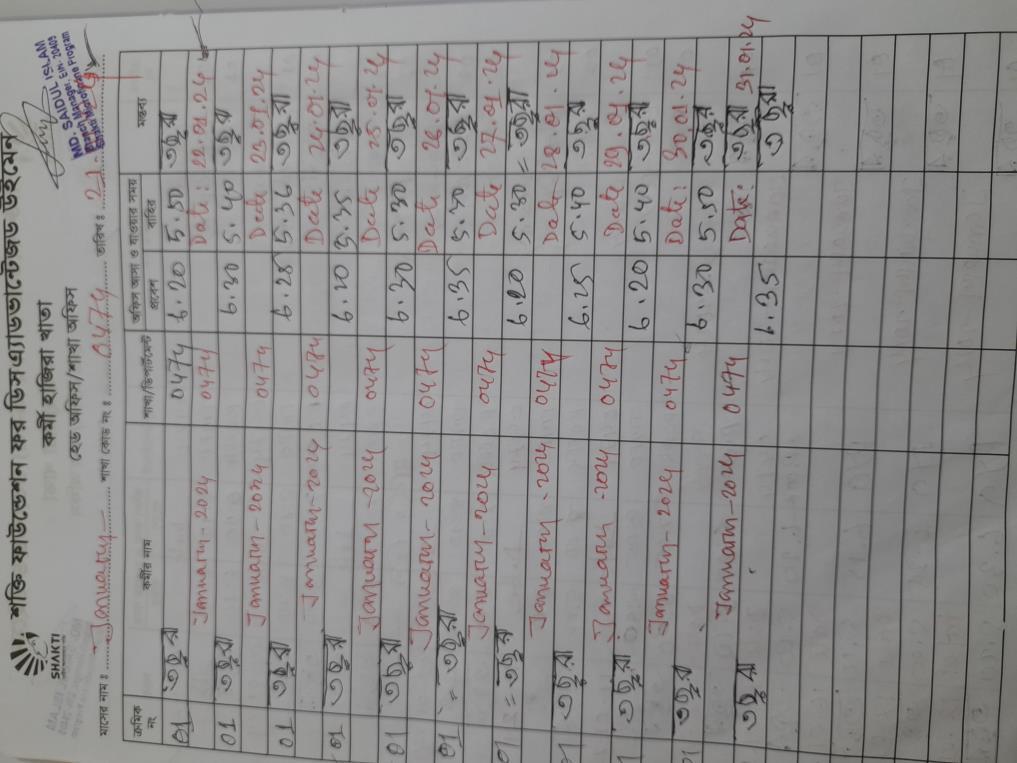 শক্তি ফাউন্ডেশন ফর ডিসএ্যাডভান্টেজড উইমেন
কর্মী হাজিরা খাতা
হেড অফিস/শাখা অফিস
SHAKTI
MD. SAIDUL ISLAM
Branch Manager, Ein: 20409
Shakti Microfinance Program
মাসের নাম ঃ January শাখা কোড নং ঃ 0474 তারিখ ঃ 21
ক্রমিক নং কর্মীর নাম শাখা/ডিপার্টমেন্ট অফিস আসা ও যাওয়ার সময় মন্তব্য
প্রবেশ বাহির
01 তজুরা 0474 6.20 5.50 তজুরা
January-2024 0474 Date: 22.01.24
01 তজুরা 6.30 5.40 তজুরা
January-2024 0474 Date 23.01.24
01 তজুরা 6.25 5.36 তজুরা
January-2024 0474 Date 24.01.24
01 তজুরা 6.20 5.35 তজুরা
January-2024 0474 Date 25.01.24
01 তজুরা 6.30 5.30 তজুরা
January-2024 0474 Date 26.01.24
01 = তজুরা 6.35 5.30 তজুরা
January-2024 0474 Date 27.01.24
01 = তজুরা 6.20 5.30 = তজুরা
January-2024 0474 Date 28.01.24
01 তজুরা 6.25 5.40 তজুরা
January-2024 0474 Date 29.01.24
01 তজুরা 6.20 5.40 তজুরা
January-2024 0474 Date: 30.01.24
01 তজুরা 6.30 5.50 তজুরা
January-2024 0474 Date: তজুরা 31.01.24
তজুরা 6.35 তজুরা